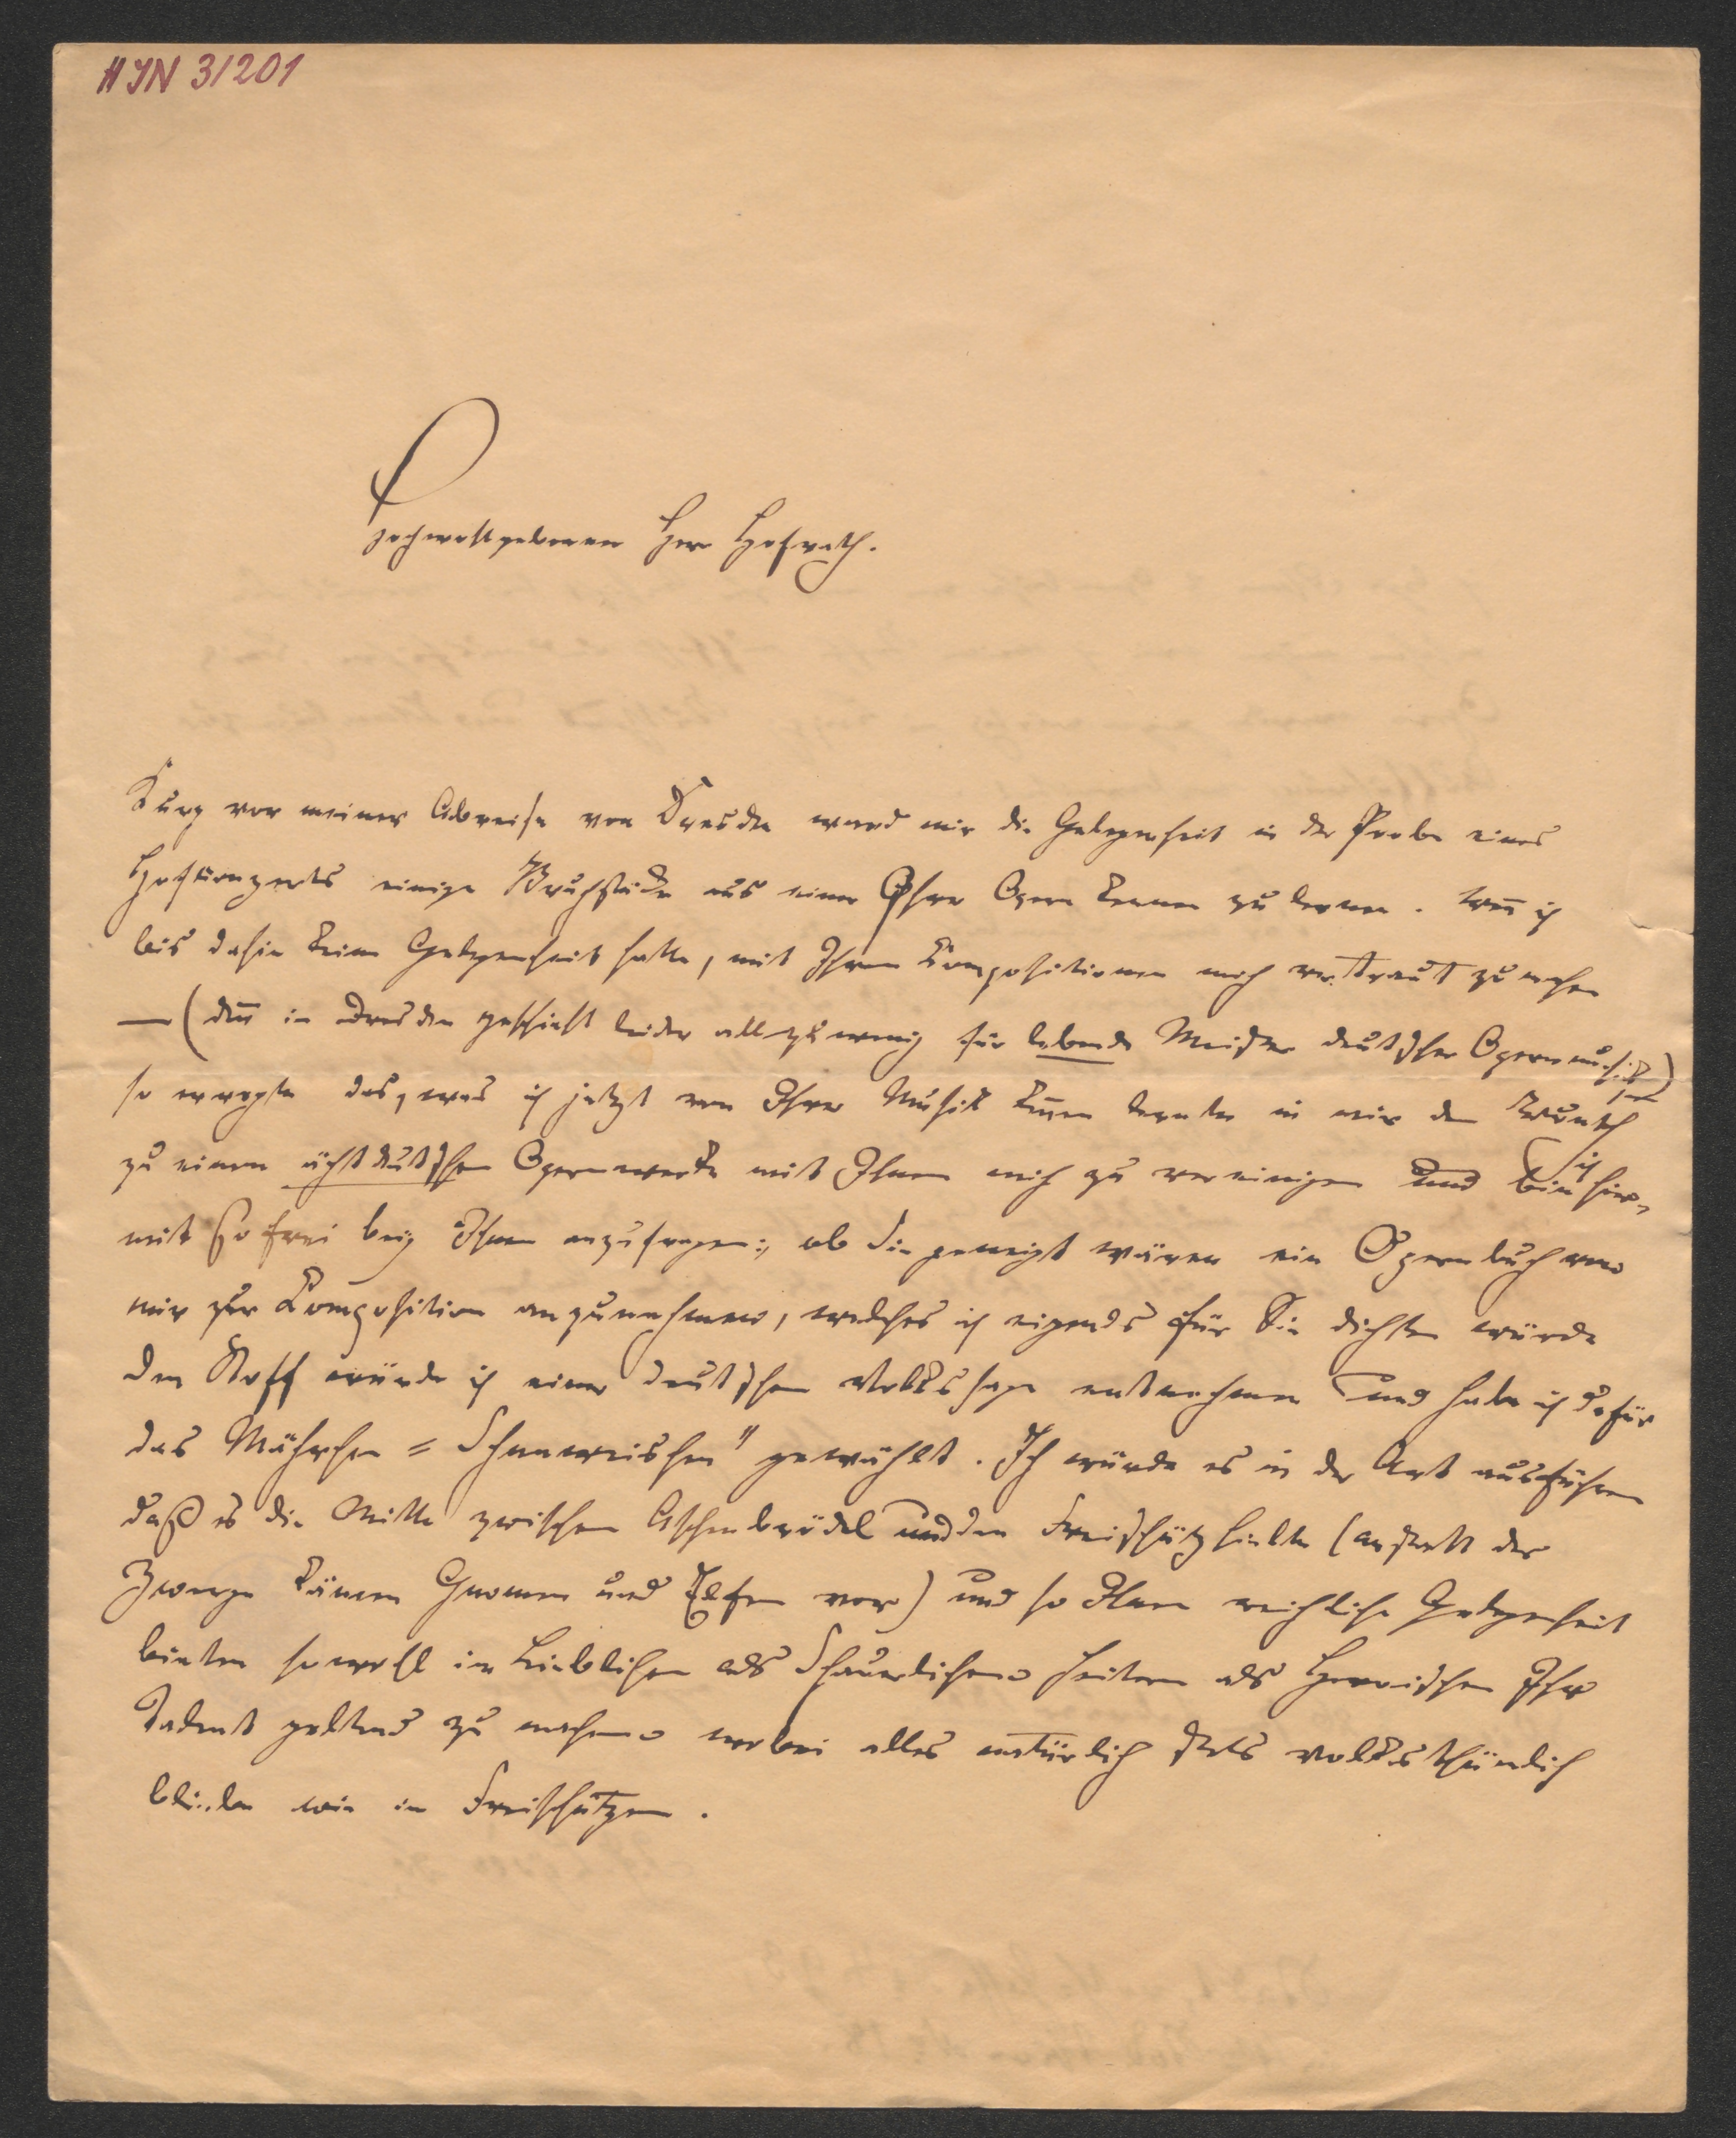 HJN 3/201
Hochwohlgeborner Herr Hofrath.
Kurz vor meiner Abreise von Dresden ward mir die Gelegenheit in der Probe eines
Hofkonzerts einige Bruchstücke aus einer Ihrer Opern kennen zu lernen. Weñ ich
bis dahin keine Gelegenheit hatte, mit Ihren Kompositionen mich vertraut zu machen
— (deñ in Dresden geschieht leider allzu wenig für lebende Meister deutscher Opernmusik)
so erregte das, was ich jetzt von Ihrer Musik keñen lernte in mir den Wunsch
zu einem ächt deutschen Opernwerke mit Ihnen mich zu vereinigen und bin ich hier-
mit so frei bey Ihnen anzufragen: ob Sie geneigt wären ein Opernbuch von
mir zur Komposition anzunehmen, welches ich eigends für Sie dichten würde
den Stoff würde ich einer deutschen Volkssage entnehmen und habe ich dafür
das Mährchen "Schneewischen" gewählt. Ich würde es in der Art ausführen
daß es die Mitte zwischen Aschenbrödel und den Freischütz hielte (anstatt der
Zwerge kämen Gnomen und Elfen vor) und so Ihnen reichliche Gelegenheit
bieten sowohl im Lieblichen als Schauerlichen heitern als Heroischen Ihr
Talent geltend zu machen wobei alles natürlich stets volksthümlich
bliebe wie im Freischützen.